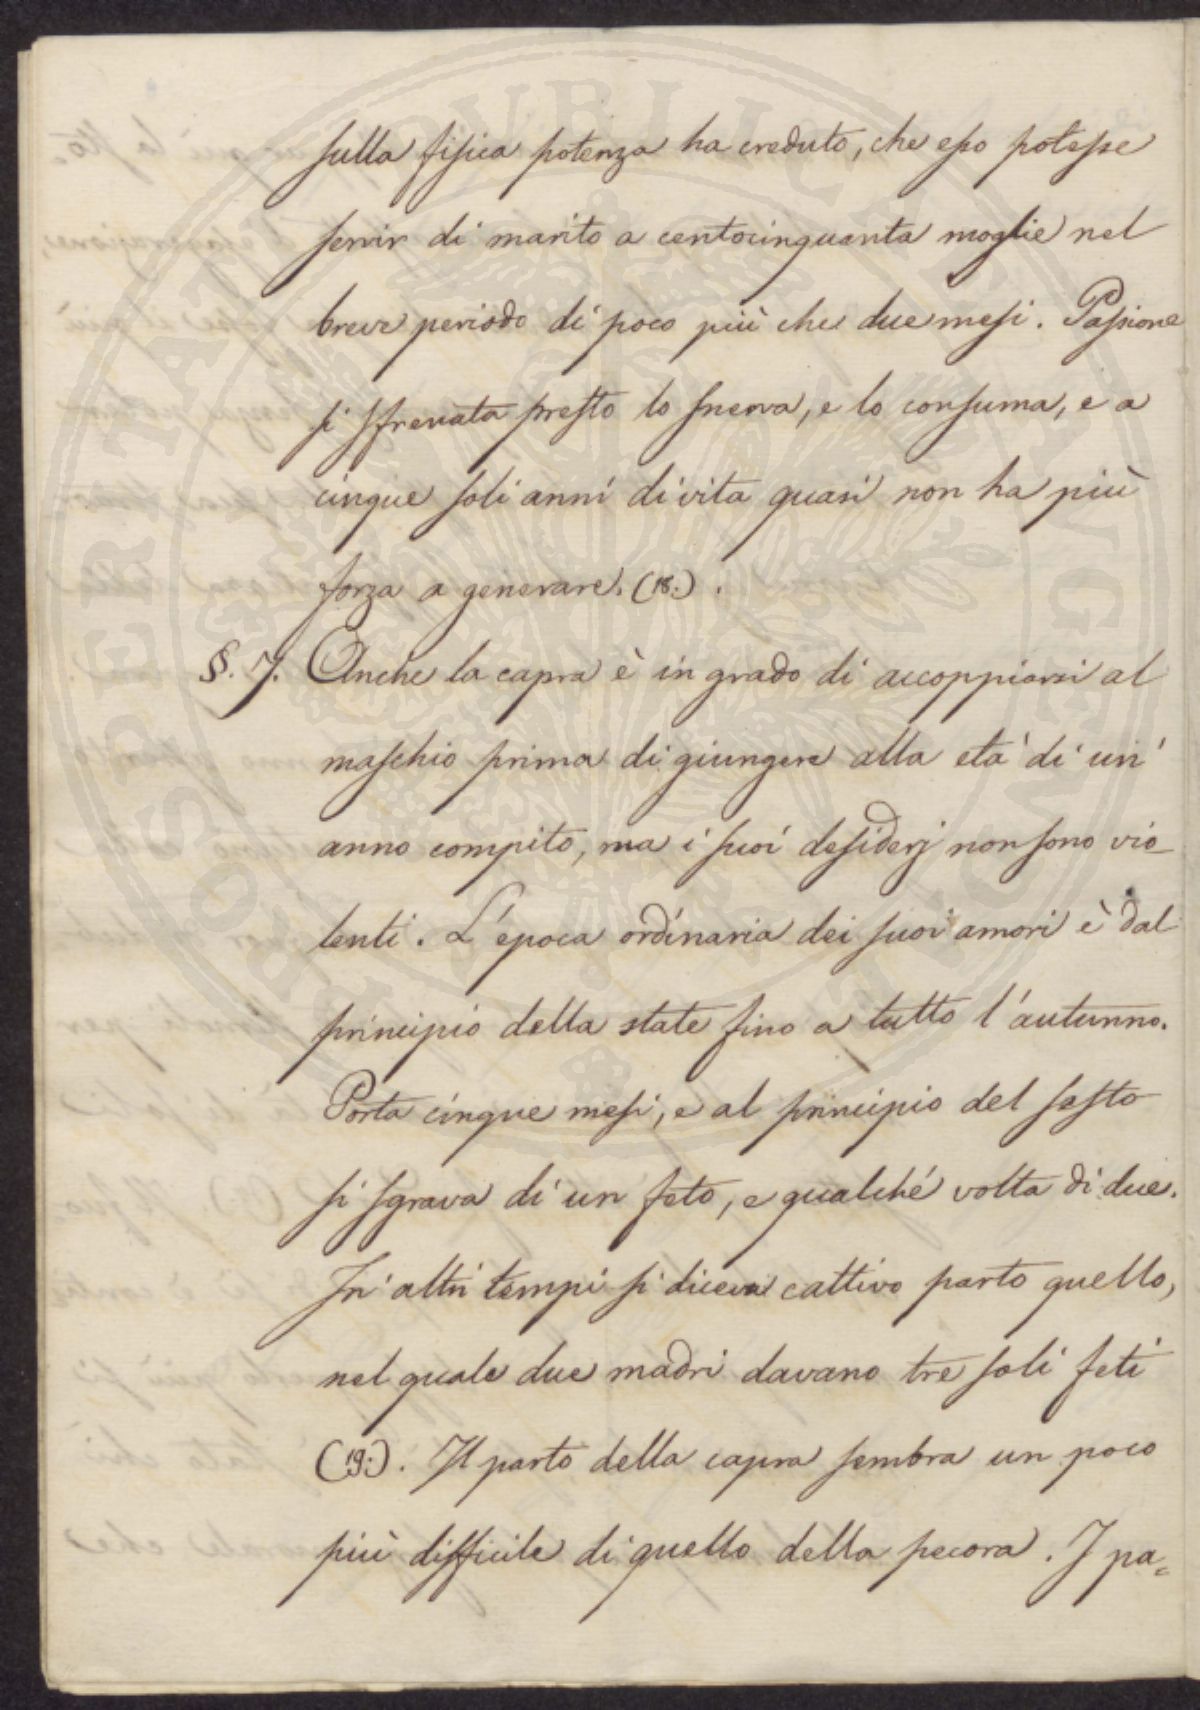 sulla fisica potenza ha creduto, che esso potesse
servir di marito a centocinquanta moglie nel
breve periodo di poco più che due mesi. Passione
si sfrenata presto lo snerva, e lo consuma, e a
cinque soli anni di vita quasi non ha più
forza a generare. (18:).
§. 7. Anche la capra è in grado di accoppiarsi al
maschio prima di giungere alla età di un'
anno compito, ma i suoi desiderj non sono vio_
lenti. L'epoca ordinaria dei suoi amori è dal
principio della state fino a tutto l'autunno.
Porta cinque mesi, e al principio del sesto
si sgrava di un feto, e qualché volta di due.
In altri tempi si diceva cattivo parto quello,
nel quale due madri davano tre soli feti
(19:). Il parto della capra sembra un poco
più difficile di quello della pecora. I pa=
PROSPERITATI PUBLICAE AUGENDAE